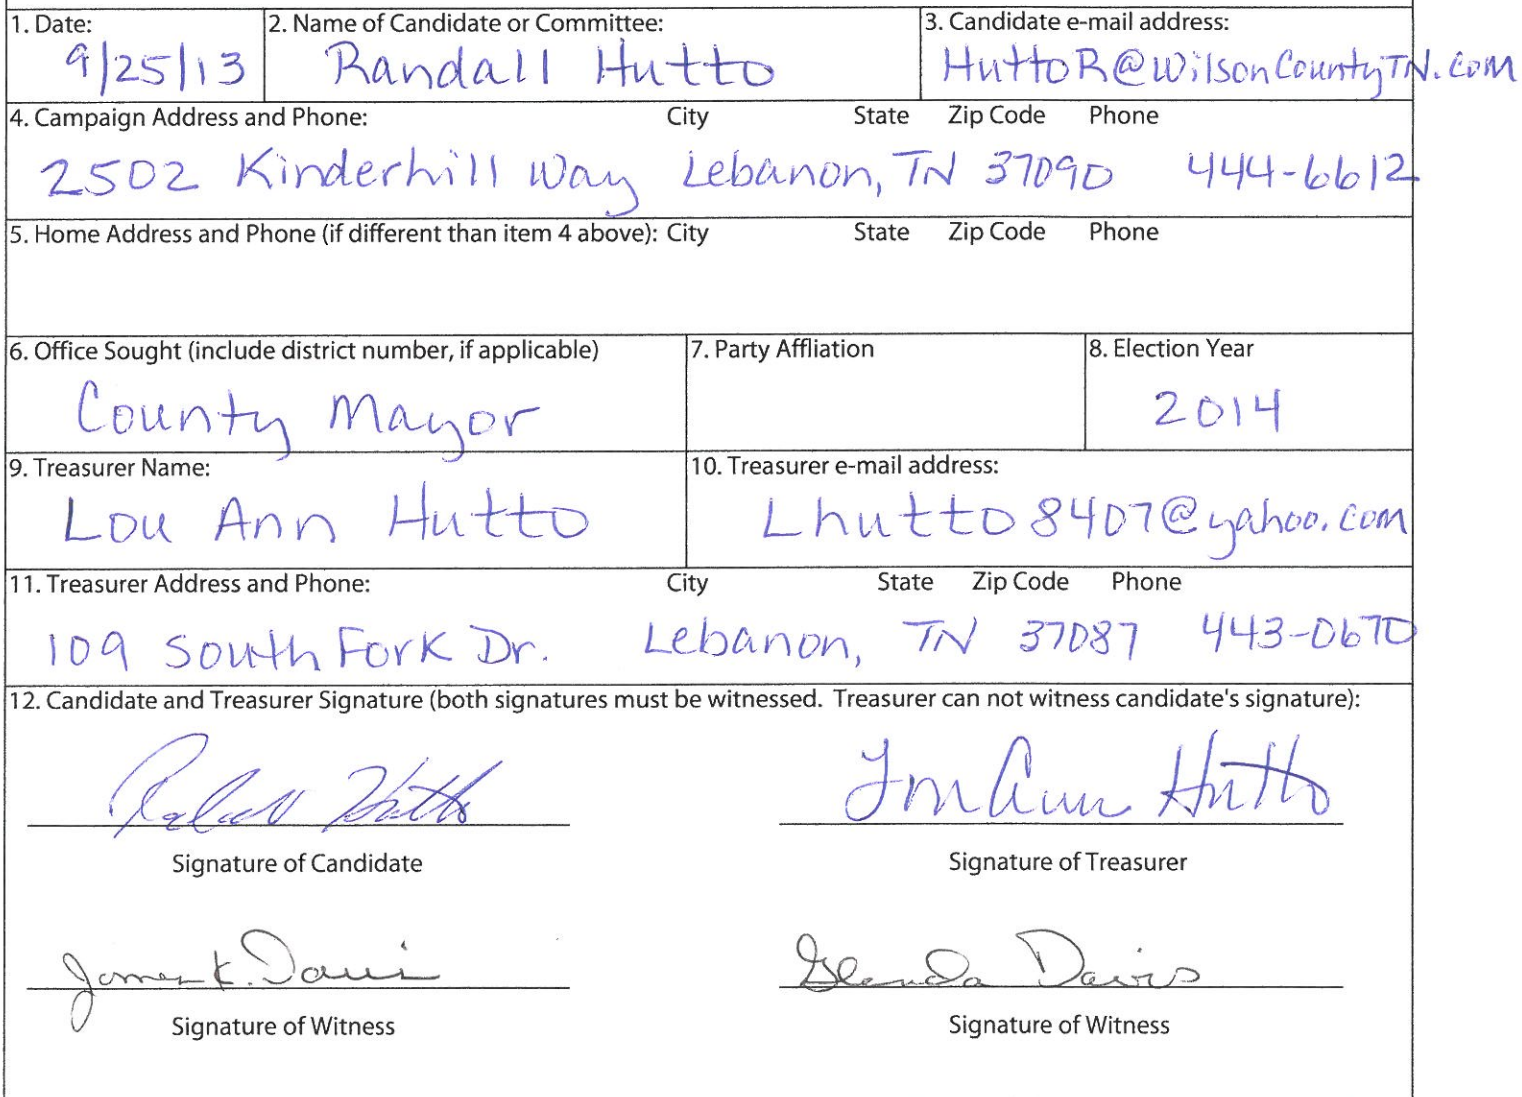 1. Date: 2. Name of Candidate or Committee: 3. Candidate e-mail address:
9/25/13 Randall Hutto HuttoR@WilsonCountyTN.com
4. Campaign Address and Phone: City State Zip Code Phone
2502 Kinderhill Way Lebanon, TN 37090 444-6612
5. Home Address and Phone (if different than item 4 above): City State Zip Code Phone
6. Office Sought (include district number, if applicable) 7. Party Affliation 8. Election Year
County Mayor 2014
9. Treasurer Name: 10. Treasurer e-mail address:
Lou Ann Hutto Lhutto8407@yahoo.com
11. Treasurer Address and Phone: City State Zip Code Phone
109 South Fork Dr. Lebanon, TN 37087 443-0670
12. Candidate and Treasurer Signature (both signatures must be witnessed. Treasurer can not witness candidate's signature):
Randall Hutto Lou Ann Hutto
Signature of Candidate Signature of Treasurer
James K. Davis Glenda Davis
Signature of Witness Signature of Witness